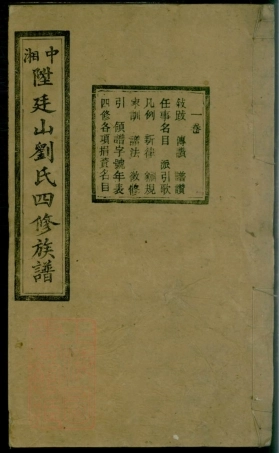 中湘陞廷山劉氏四修族譜
一卷
敘跋 傳讚 贈讚
任事名目 派引歌
凡例 新律 額規
家訓 譜法 倣修
引 領譜字號年表
四修各項捐資名目